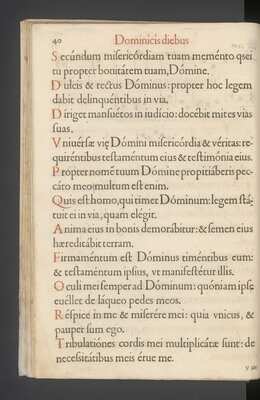 40 Dominicis diebus
Secúndum misericórdiam tuam meménto mei
tu propter bonitátem tuam, Dómine.
Dulcis & rectus Dóminus: propter hoc legem
dabit delinquéntibus in via.
Díriget mansuétos in iudício: docébit mites vias
suas.
Vniuérsæ viæ Dómini misericórdia & véritas: re-
quiréntibus testaméntum eius & testimónia eius.
Propter nomé tuum Dómine propitiáberis pec-
cáto meo: multum est enim.
Quis est homo, qui timet Dóminum: legem stá-
tuit ei in via, quam elégit.
Anima eius in bonis demorábitur: & semen eius
hæreditábit terram.
Firmaméntum est Dóminus timéntibus eum:
& testaméntum ipsíus, vt manifestétur illis.
Oculi mei semper ad Dóminum: quóniam ipse
euéllet de láqueo pedes meos.
Réspice in me & miserére mei: quia vnicus, &
pauper sum ego.
Tribulatiónes cordis mei multiplicátæ sunt: de
necessitátibus meis érue me.